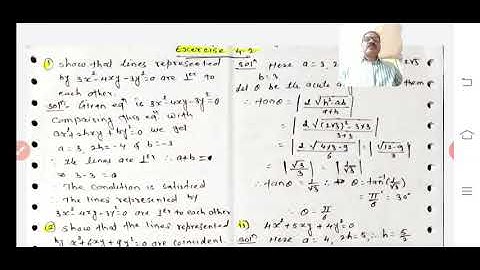 Excercise 4.2
① show that lines represented
by 3x²-4xy-3y²=0 are ⊥er to
each other.
Solⁿ- Given eqⁿ is 3x²-4xy-3y²=0
Comparing this eqⁿ with
ax²+2hxy+by²=0 we get
a=3, 2h=-4 & b=-3
∴ the lines are ⊥er ∴ a+b=0
∴ 3-3=0
∴ The condition is satisfied
∴ The lines represented by
3x²-4xy-3y²=0 are ⊥er to each other
② show that the lines represented
by x²+6xy+9y²=0 are coincident
Solⁿ Here a=3, 2 2√3
b=3
Let θ be the acute them
∴ tanθ = |2√(h²-ab)/(a+b)|
= |2√((2√3)²-3×3)/(3+3)|
= |2√(4×3-9)/6| = |√(12-9)/3|
= |√3/3| = |1/√3|
∴ tanθ = 1/√3 ∴ θ = tan⁻¹(1/√3)
= π/6 = 30°
∴ θ = π/6
ii) 4x²+5xy+4y²=0
Solⁿ Here a=4, 2h=5, ∴ h=5/2